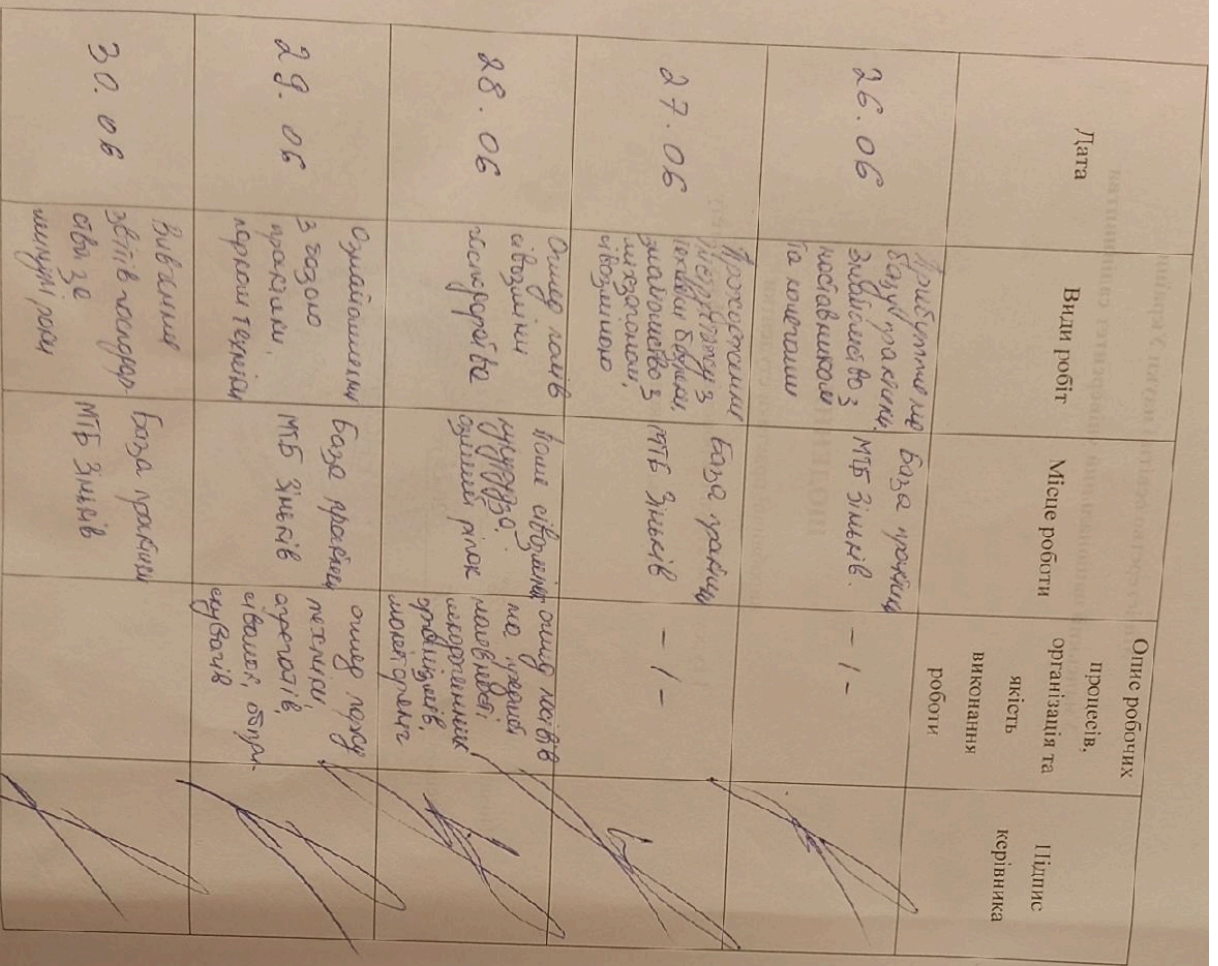 Дата
Види робіт
Місце роботи
Опис робочих
процесів,
організація та
якість
виконання
роботи
Підпис
керівника
26.06
Прибуття на
базу практики,
знайомство з
наставником
та колегами
База практики
МТБ Зіньків.
- 1 -
27.06
Проходження
інструктажу з
техніки безпеки,
знайомство з
сівозміною
База практики
МТБ Зіньків
- 1 -
28.06
Огляд полів
сівозміни
господарства
Поле сівозміни
кукурудза,
озимий ріпак
огляд посівів
на предмет
наявності
шкодочинних
організмів,
моніторинг
29.06
Ознайомлення
з базою
практики,
парком техніки
База практики
МТБ Зіньків
огляд парку
техніки,
агрегатів,
сівалок, обпри-
скувачів
30.06
Вивчення
звітів господар-
ства за
минулі роки
База практики
МТБ Зіньків